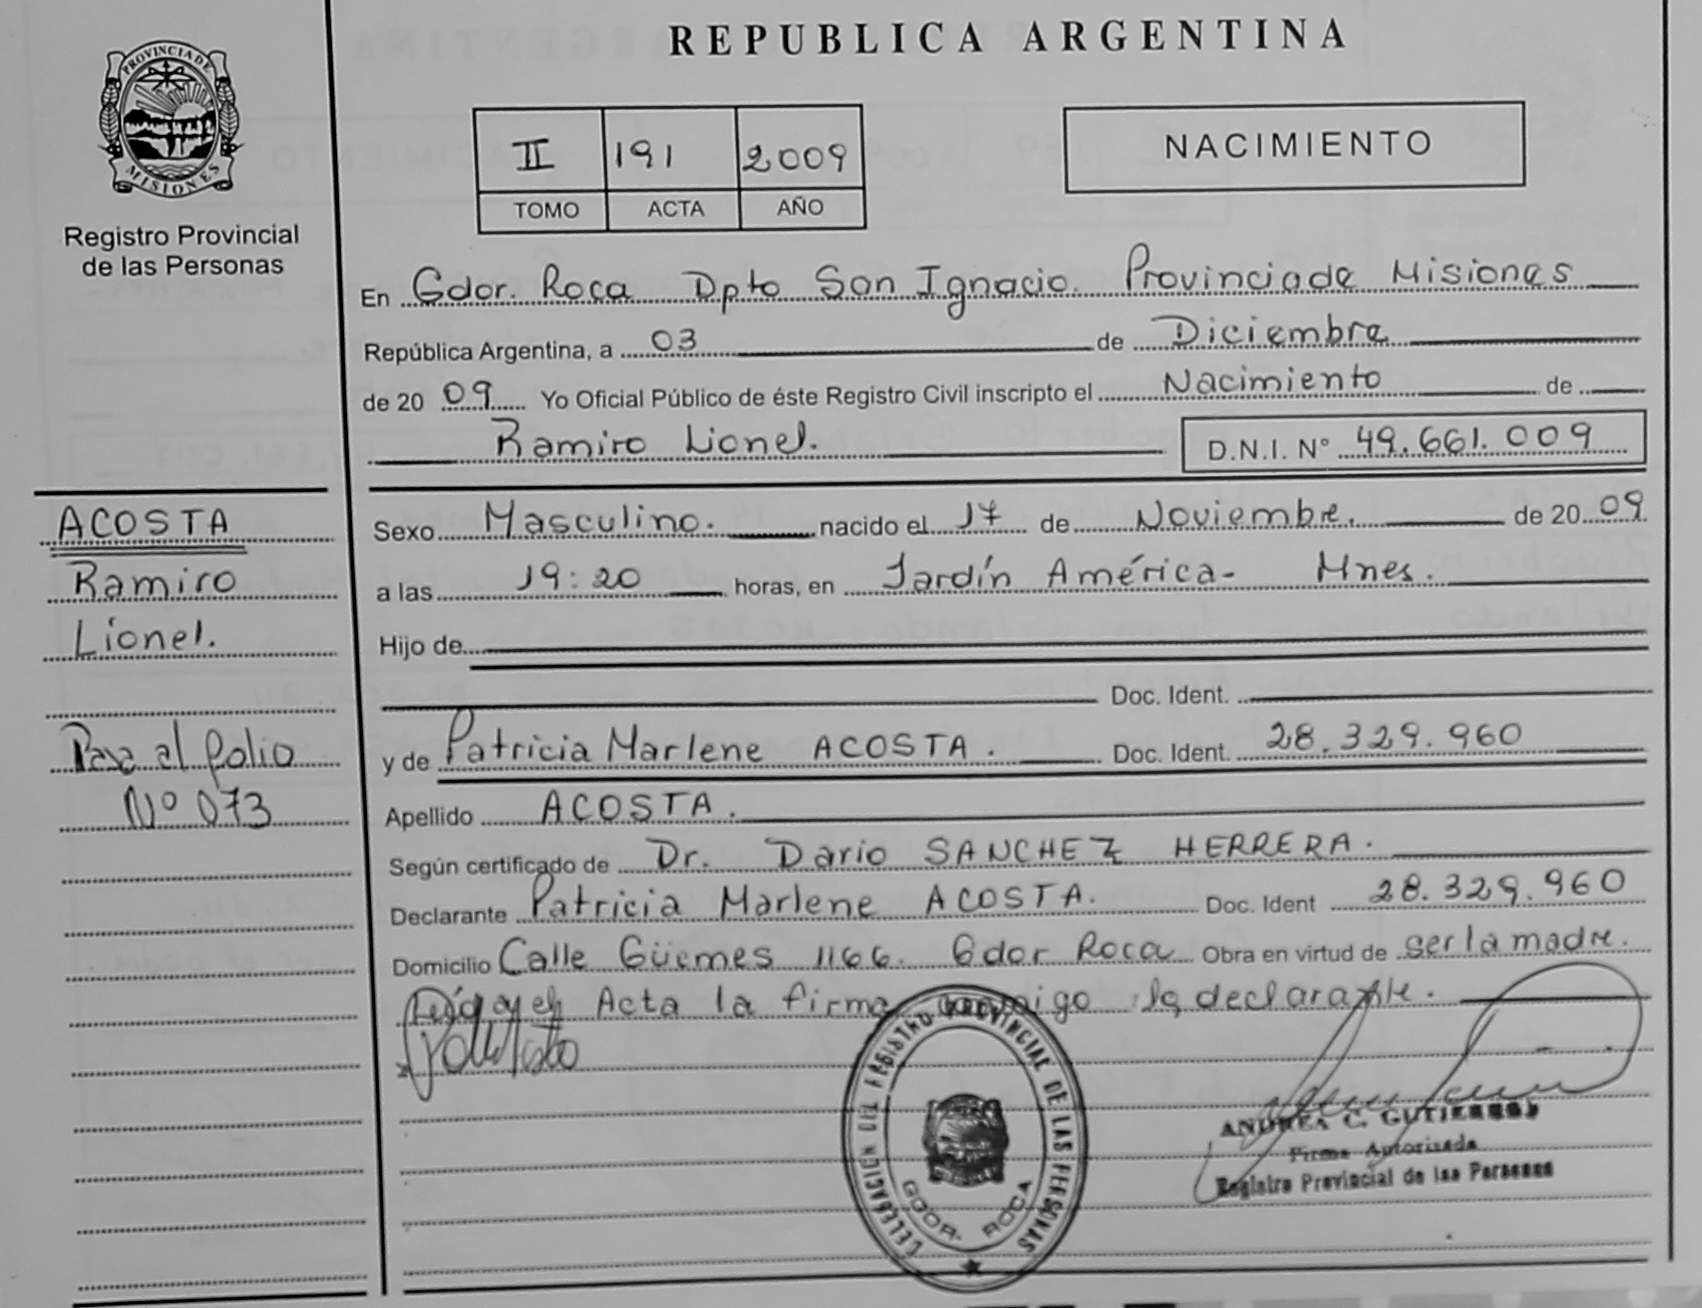 REPUBLICA ARGENTINA
PROVINCIA DE
MISIONES
Registro Provincial
de las Personas
II 191 2009
TOMO ACTA AÑO
NACIMIENTO
En Gdor. Roca Dpto San Ignacio. Provincia de Misiones
República Argentina, a 03 de Diciembre
de 2009 Yo Oficial Público de éste Registro Civil inscripto el Nacimiento de
Ramiro Lionel. D.N.I. N° 49.661.009
ACOSTA
Ramiro
Lionel.
Pasa al folio
Nº 073
Sexo Masculino. nacido el 17 de Noviembre. de 2009
a las 19:20 horas, en Jardín América- Mnes.
Hijo de
Doc. Ident.
y de Patricia Marlene ACOSTA. Doc. Ident. 28.329.960
Apellido ACOSTA.
Según certificado de Dr. Dario SANCHEZ HERRERA.
Declarante Patricia Marlene ACOSTA. Doc. Ident 28.329.960
Domicilio Calle Güemes 1166. Gdor Roca Obra en virtud de ser la madre.
Acta la firma conmigo la declarante.
REGISTRO PROVINCIAL DE LAS PERSONAS
GDOR. ROCA
ANDREA C. GUTIERREZ
Firma Autorizada
Registro Provincial de las Personas